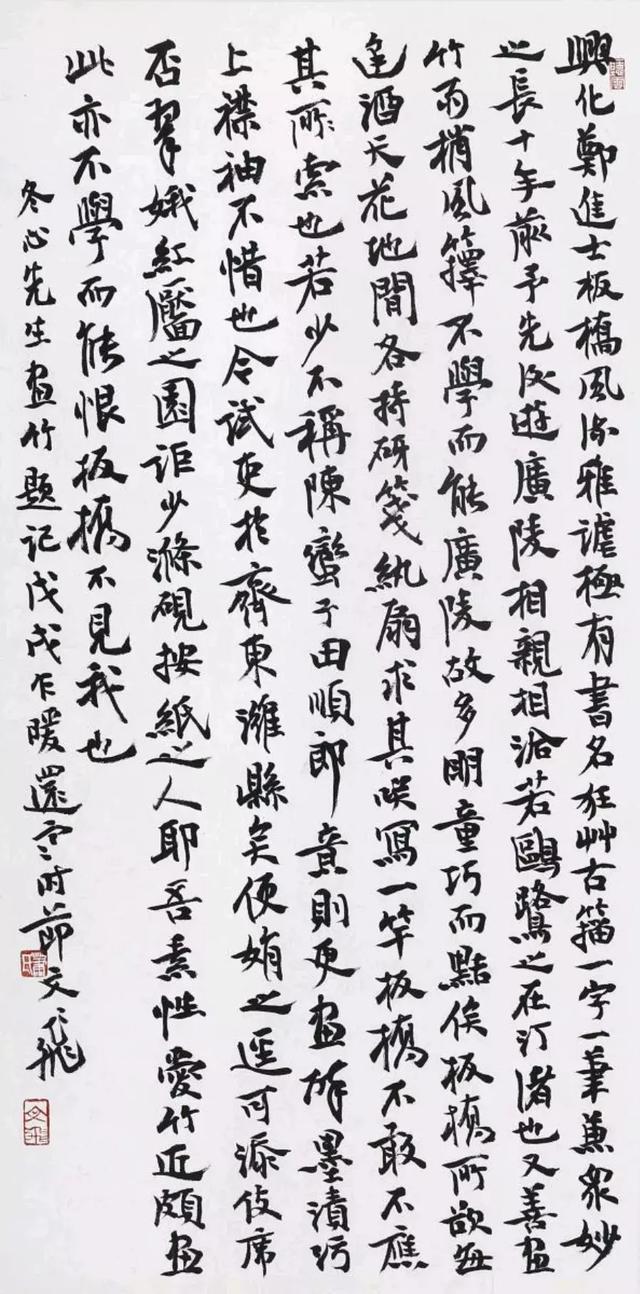 興化鄭進士板橋風流雅謔極有書名狂艸古籀一字一筆兼眾妙
之長十年前予先後遊廣陵相親相洽若鷗鷺之在汀渚也又善畫
竹雨梢風籜不學而能廣陵故多明童巧而黠俟板橋所欲每
逢酒天花地間各持砑箋紈扇求其咲寫一竿板橋不敢不應
其所索也若少不稱陳蠻子田順郎意則更畫醉墨漬污
上襟袖不惜也今試吏於齊東濰縣矣便娟之逕可添伎席
否翠娥紅靨之園詎少滌硯按紙之人耶吾素性愛竹近頗畫
此亦不學而能恨板橋不見我也
冬心先生畫竹題記戊戌乍暖還寒時節文飛
文飛